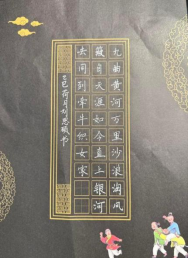 九曲黄河万里沙浪淘风
簸自天涯如今直上银河
去同到牵牛织女家
乙巳荷月书